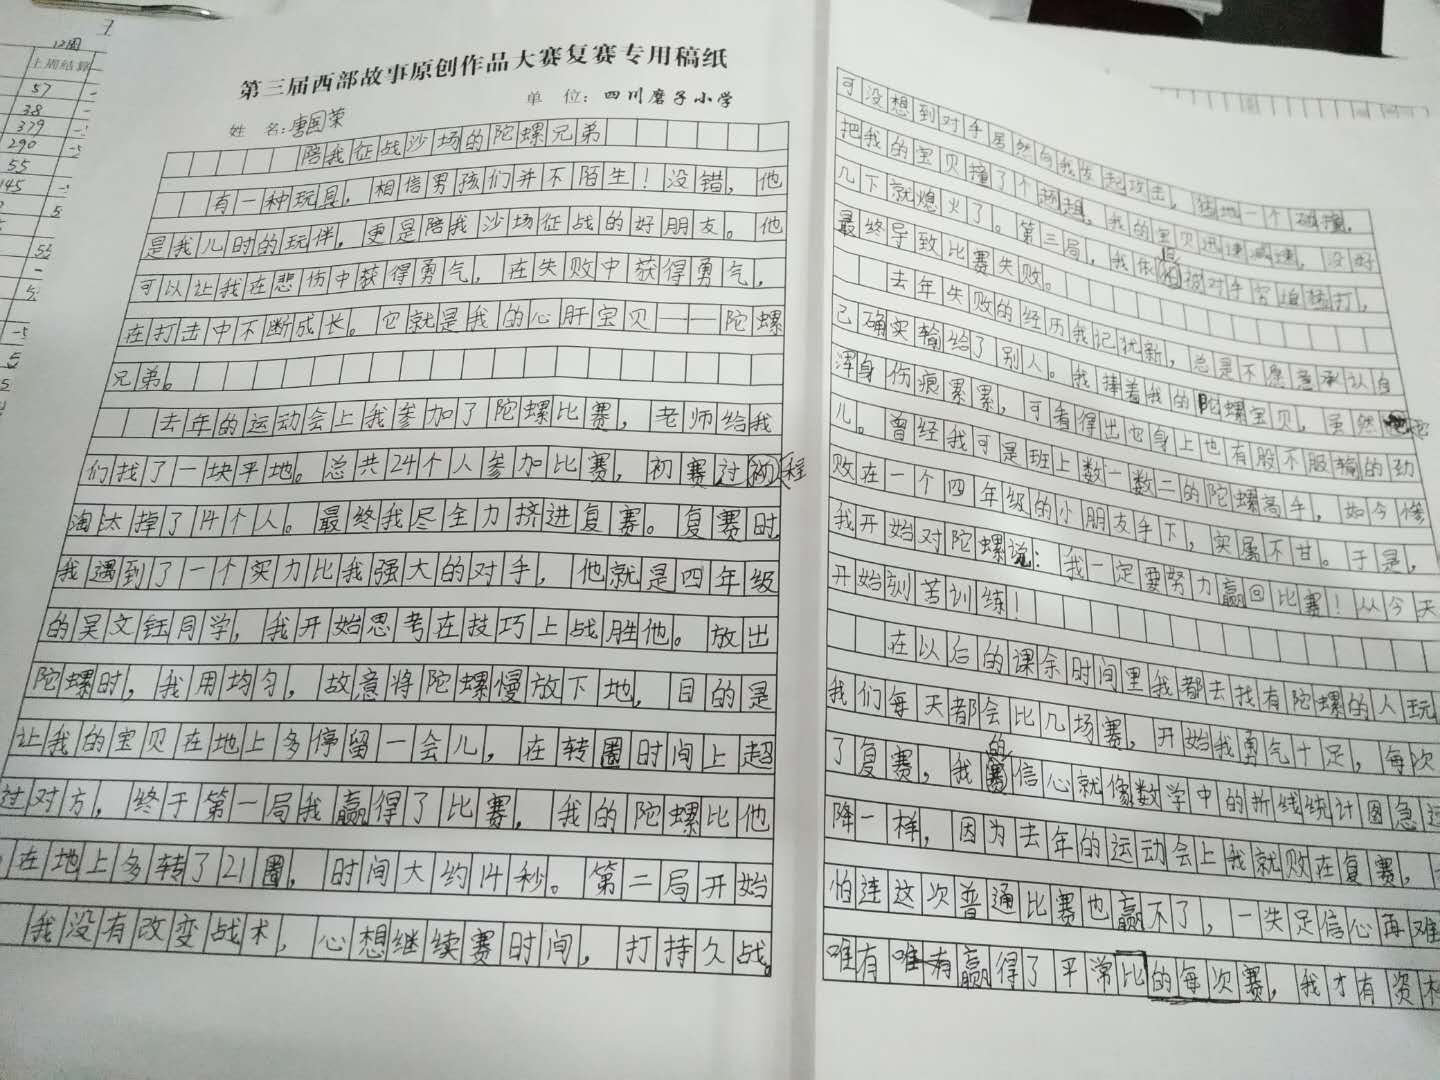 12周
上周结算
57
38
379
290
55
145
第三届西部故事原创作品大赛复赛专用稿纸
单 位：四川磨子小学
姓 名：唐国荣
陪我征战沙场的陀螺兄弟
有一种玩具，相信男孩们并不陌生！没错，他
是我儿时的玩伴，更是陪我沙场征战的好朋友。他
可以让我在悲伤中获得勇气，在失败中获得勇气，
在打击中不断成长。它就是我的心肝宝贝——陀螺
兄弟。
去年的运动会上我参加了陀螺比赛，老师给我
们找了一块平地。总共24个人参加比赛，初赛过程
淘汰掉了14个人。最终我尽全力挤进复赛。复赛时，
我遇到了一个实力比我强大的对手，他就是四年级
的吴文钰同学，我开始思考在技巧上战胜他。放出
陀螺时，我用均匀，故意将陀螺慢放下地，目的是
让我的宝贝在地上多停留一会儿，在转圈时间上超
过对方，终于第一局我赢得了比赛，我的陀螺比他
在地上多转了21圈，时间大约14秒。第二局开始
我没有改变战术，心想继续赛时间，打持久战。
可没想到对手居然向我发起攻击，猛地一个碰撞，
把我的宝贝撞了个趔趄，我的宝贝迅速减速，没好
几下就熄火了。第三局，我依然被对手穷追猛打，
最终导致比赛失败。
去年失败的经历我记忧新，总是不愿意承认自
己确实输给了别人。我捧着我的陀螺宝贝，虽然它
浑身伤痕累累，可看得出它身上也有股不服输的劲
儿。曾经我可是班上数一数二的陀螺高手，如今惨
败在一个四年级的小朋友手下，实属不甘。于是，
我开始对陀螺说：我一定要努力赢回比赛！从今天
开始刻苦训练！
在以后的课余时间里我都去找有陀螺的人玩
我们每天都会比几场赛，开始我勇气十足，每次
了复赛，我的信心就像数学中的折线统计图急速
降一样，因为去年的运动会上我就败在复赛，
怕连这次普通比赛也赢不了，一失足信心再难
唯有赢得了平常的每次比赛，我才有资格